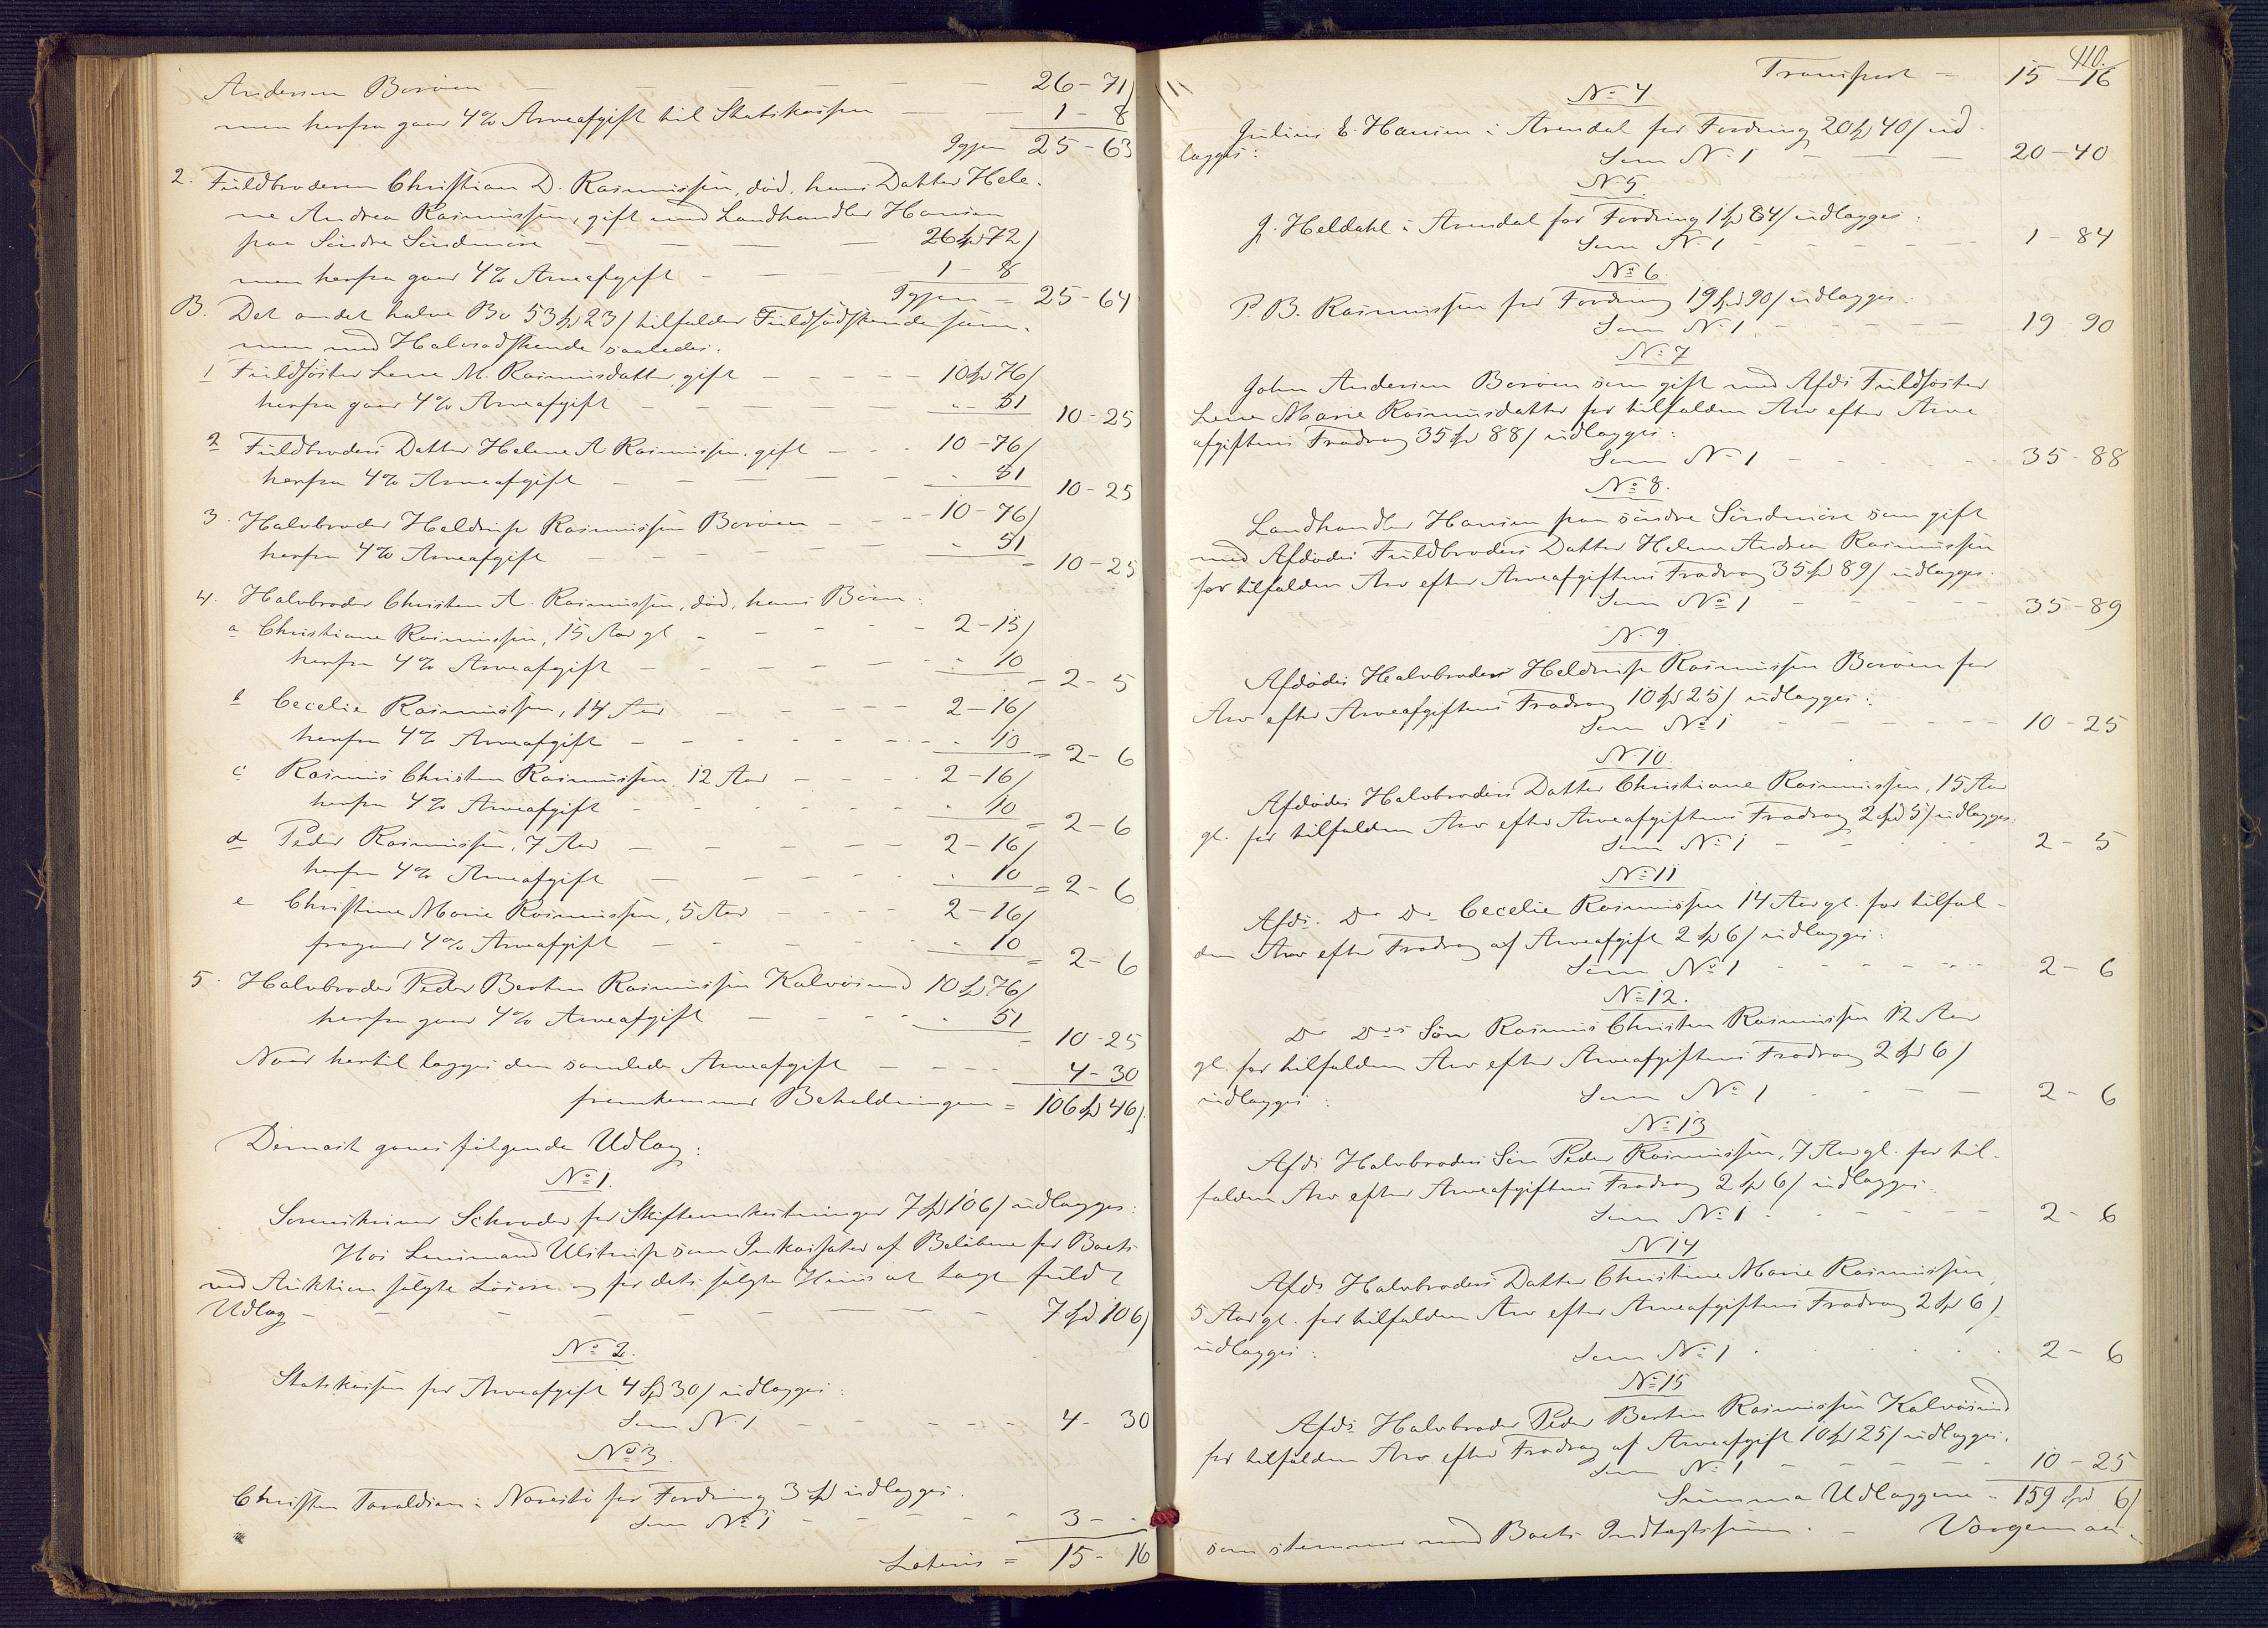 Andersen Borøen — — — 26-71/
men herfra gaar 4% Arveafgift til Statskassen — 1 - 8
Igjen 25-63
2. Fuldbroderen Christian D. Rasmussen, død, hans Datter Hele-
ne Andrea Rasmussen, gift med Landhandler Hansen
paa Søndre Sandøen — — — 26 Spd 72/
men herfra gaar 4% Arveafgift — — 1 - 8
Igjen = 25-64
B. Det andet halve Bo 53 Spd 23/ tilfalder Fuldsødskende sam-
men med Halvsødskende saaledes:
1 Fuldsøster Lene M. Rasmusdatter gift — — 10 Spd 76/
herfra gaar 4% Arveafgift — — " - 51 10-25
2 Fuldbroders Datter Helene A Rasmussen, gift — 10-76/
herfra 4% Arveafgift — — 51 10-25
3. Halvbroder Heldrup Rasmussen Borøen — 10-76/
herfra 4% Arveafgift — — 51 = 10-25
4. Halvbroder Christen A. Rasmussen, død, hans Børn:
a Christiane Rasmussen, 15 Aar gl — 2-15/
herfra 4% Arveafgift — 10 = 2-5
b Cecelie Rasmussen, 14 Aar — 2-16/
herfra 4% Arveafgift — 10 = 2-6
c Rasmus Christen Rasmussen, 12 Aar — 2-16/
herfra 4% Arveafgift — 10 = 2-6
d Peder Rasmussen, 7 Aar — 2-16/
herfra 4% Arveafgift — 10 = 2-6
e Christine Marie Rasmussen, 5 Aar — 2-16/
fragaar 4% Arveafgift — 10 = 2-6
5. Halvbroder Peder Berthin Rasmussen Kalvøsund 10 Spd 76/
herfra gaar 4% Arveafgift — 51 = 10-25
Naar hertil lægges den samlede Arveafgift — 4-30
fremkommer Beholdningen = 106 Spd 46/
Dernæst gaves følgende Udlæg:
No 1.
Sorenskriver Schrøder for Skifteomkostninger 7 Spd 106/ udlægges:
Hos Lensmand Ulstrup som Inkassator af Beløbene for Boets
ved Auktion solgte Løsøre og for dets solgte Huus at tage fuldt
Udlæg — — — 7 Spd 106/
No 2.
Statskassen for Arveafgift 4 Spd 30/ udlægges:
Som No 1 — — 4- 30
No 3.
Christen Taraldsen i Narestø for Fordring 3 Spd udlægges.
Som No 1 — — 3- "
Lateris = 15-16
110.
Transport — 15-16
No 4
Julius E. Hansen i Arendal for Fordring 20 Spd 40/ ud-
lægges: Som No 1 — — 20-40
No 5.
J. Heldahl i Arendal for Fordring 1 Spd 84/ udlægges:
Som No 1 — — 1-84
No 6.
P. B. Rasmussen for Fordring 19 Spd 90/ udlægges.
Som No 1. — — 19 90
No 7
John Andersen Borøen som gift med Afds Fuldsøster
Lene Marie Rasmusdatter for tilfalden Arv efter Arve
afgiftens Fradrag 35 Spd 88/ udlægges:
Som No 1 — — 35-88
No 8.
Landhandler Hansen paa søndre Sandøen som gift
med Afdødes Fuldbroders Datter Helene Andrea Rasmussen
for tilfalden Arv efter Arveafgiftens Fradrag 35 Spd 89/ udlægges.
Som No 1 — — 35-89
No 9.
Afdødes Halvbroder Heldrup Rasmussen Borøen for
Arv efter Arveafgiftens Fradrag 10 Spd 25/ udlægges:
Som No 1 — — 10-25
No 10.
Afdødes Halvbroders Datter Christiane Rasmussen, 15 Aar
gl. for tilfalden Arv efter Arveafgiftens Fradrag 2 Spd 5/ udlægges:
Som No 1 — — 2- 5
No 11
Afds. Do Do Cecelie Rasmussen 14 Aar gl. for tilfal-
den Arv efter Fradrag af Arveafgift 2 Spd 6/ udlægges:
Som No 1 — — 2- 6
No 12.
Do Dos Søn Rasmus Christen Rasmussen 12 Aar
gl. for tilfalden Arv efter Arveafgiftens Fradrag 2 Spd 6/
udlægges: Som No 1 — — 2- 6
No 13
Afds Halvbroders Søn Peder Rasmussen, 7 Aar gl. for til-
falden Arv efter Arveafgiftens Fradrag 2 Spd 6/ udlægges.
Som No 1 — — 2- 6
No 14
Afds Halvbroders Datter Christine Marie Rasmussen,
5 Aar gl. for tilfalden Arv efter Arveafgiftens Fradrag 2 Spd 6/.
udlægges: Som No 1 — — 2- 6
No 15
Afds. Halvbroder Peder Berthin Rasmussen Kalvøsund
for tilfalden Arv efter Fradrag af Arveafgift 10 Spd 25/ udlægges.
Som No 1 — — 10-25
Summa Udlæggene = 159 Spd 6/
som stemmer med Boets Indtægtssum. —